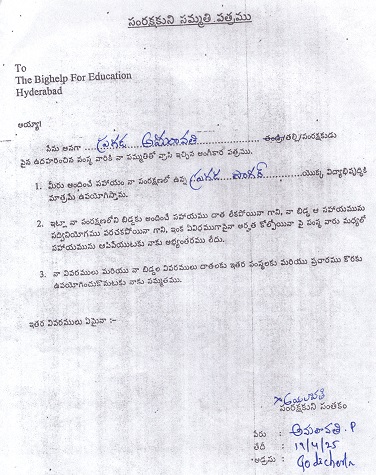 సంరక్షకుని సమ్మతి పత్రము
To
The Bighelp For Education
Hyderabad
అయ్యా!
నేను అనగా ..... ప్రగడ అమరావతి ..... తండ్రి/తల్లి/సంరక్షకుడు
పైన ఉదహరించిన సంస్థ వారికి నా సమ్మతితో వ్రాసి ఇచ్చిన అంగీకార పత్రము.
1. మీరు అందించే సహాయం నా సంరక్షణలో ఉన్న ప్రగడ సాగర్ యొక్క విద్యాభివృద్ధికి
మాత్రమే ఉపయోగిస్తాము.
2. ఇట్లా నా సంరక్షణలోని బిడ్డకు అందించే సహాయము దాత లేకపోయినా గాని, నా బిడ్డ ఆ సహాయమును
సద్వినియోగము పరచకపోయినా గాని, ఇంక ఏవిధముగానైనా అర్హత కోల్పోయినా పై సంస్థ వారు మధ్యలో
సహాయమును ఆపివేయుటకు నాకు అభ్యంతరము లేదు.
3. నా వివరములు మరియు నా బిడ్డల వివరములు దాతలకు ఇతర సంస్థలకు మరియు ప్రచారము కొరకు
ఉపయోగించుకొనుటకు నాకు సమ్మతము.
ఇతర వివరములు ఏమైనా :-
సంరక్షకుని సంతకం
పేరు : అమరావతి. P
తేదీ : 19/4/25
అడ్రసు :